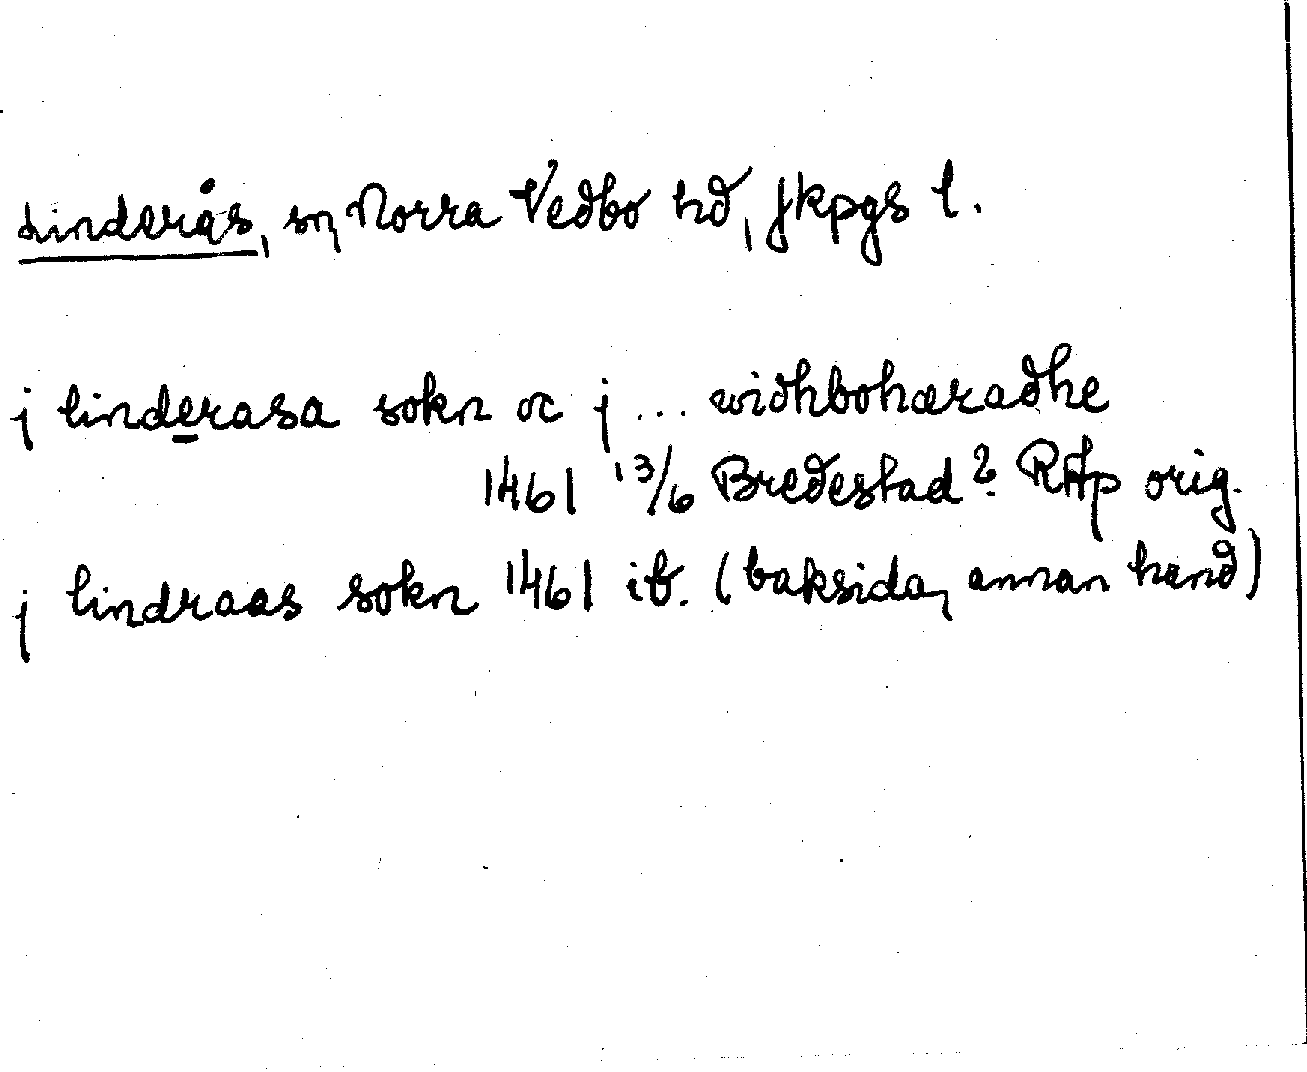 Linderås, sn, Norra Vedbo hd, Jkpgs l.
j linderasa sokn oc j ... widhbohæradhe
1461 13/6 Bredestad? RAp orig.
j lindraas sokn 1461 ib. (baksida, annan hand)